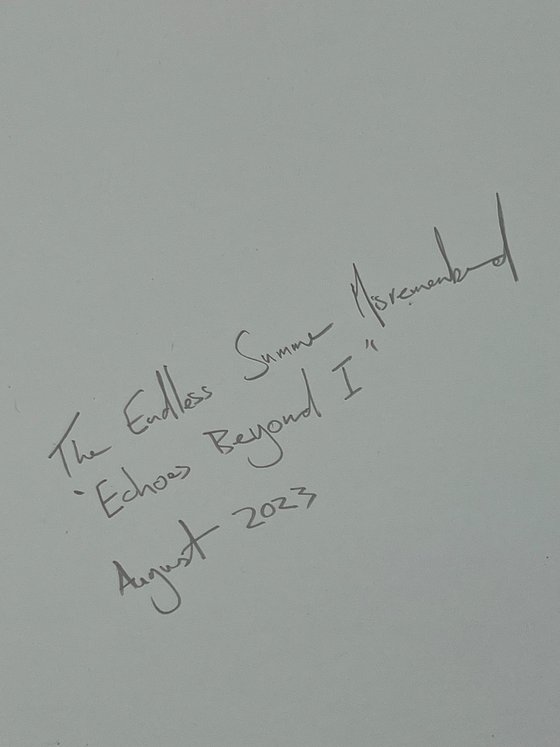 The Endless Summer Misremembered
"Echoes Beyond I"
August 2023